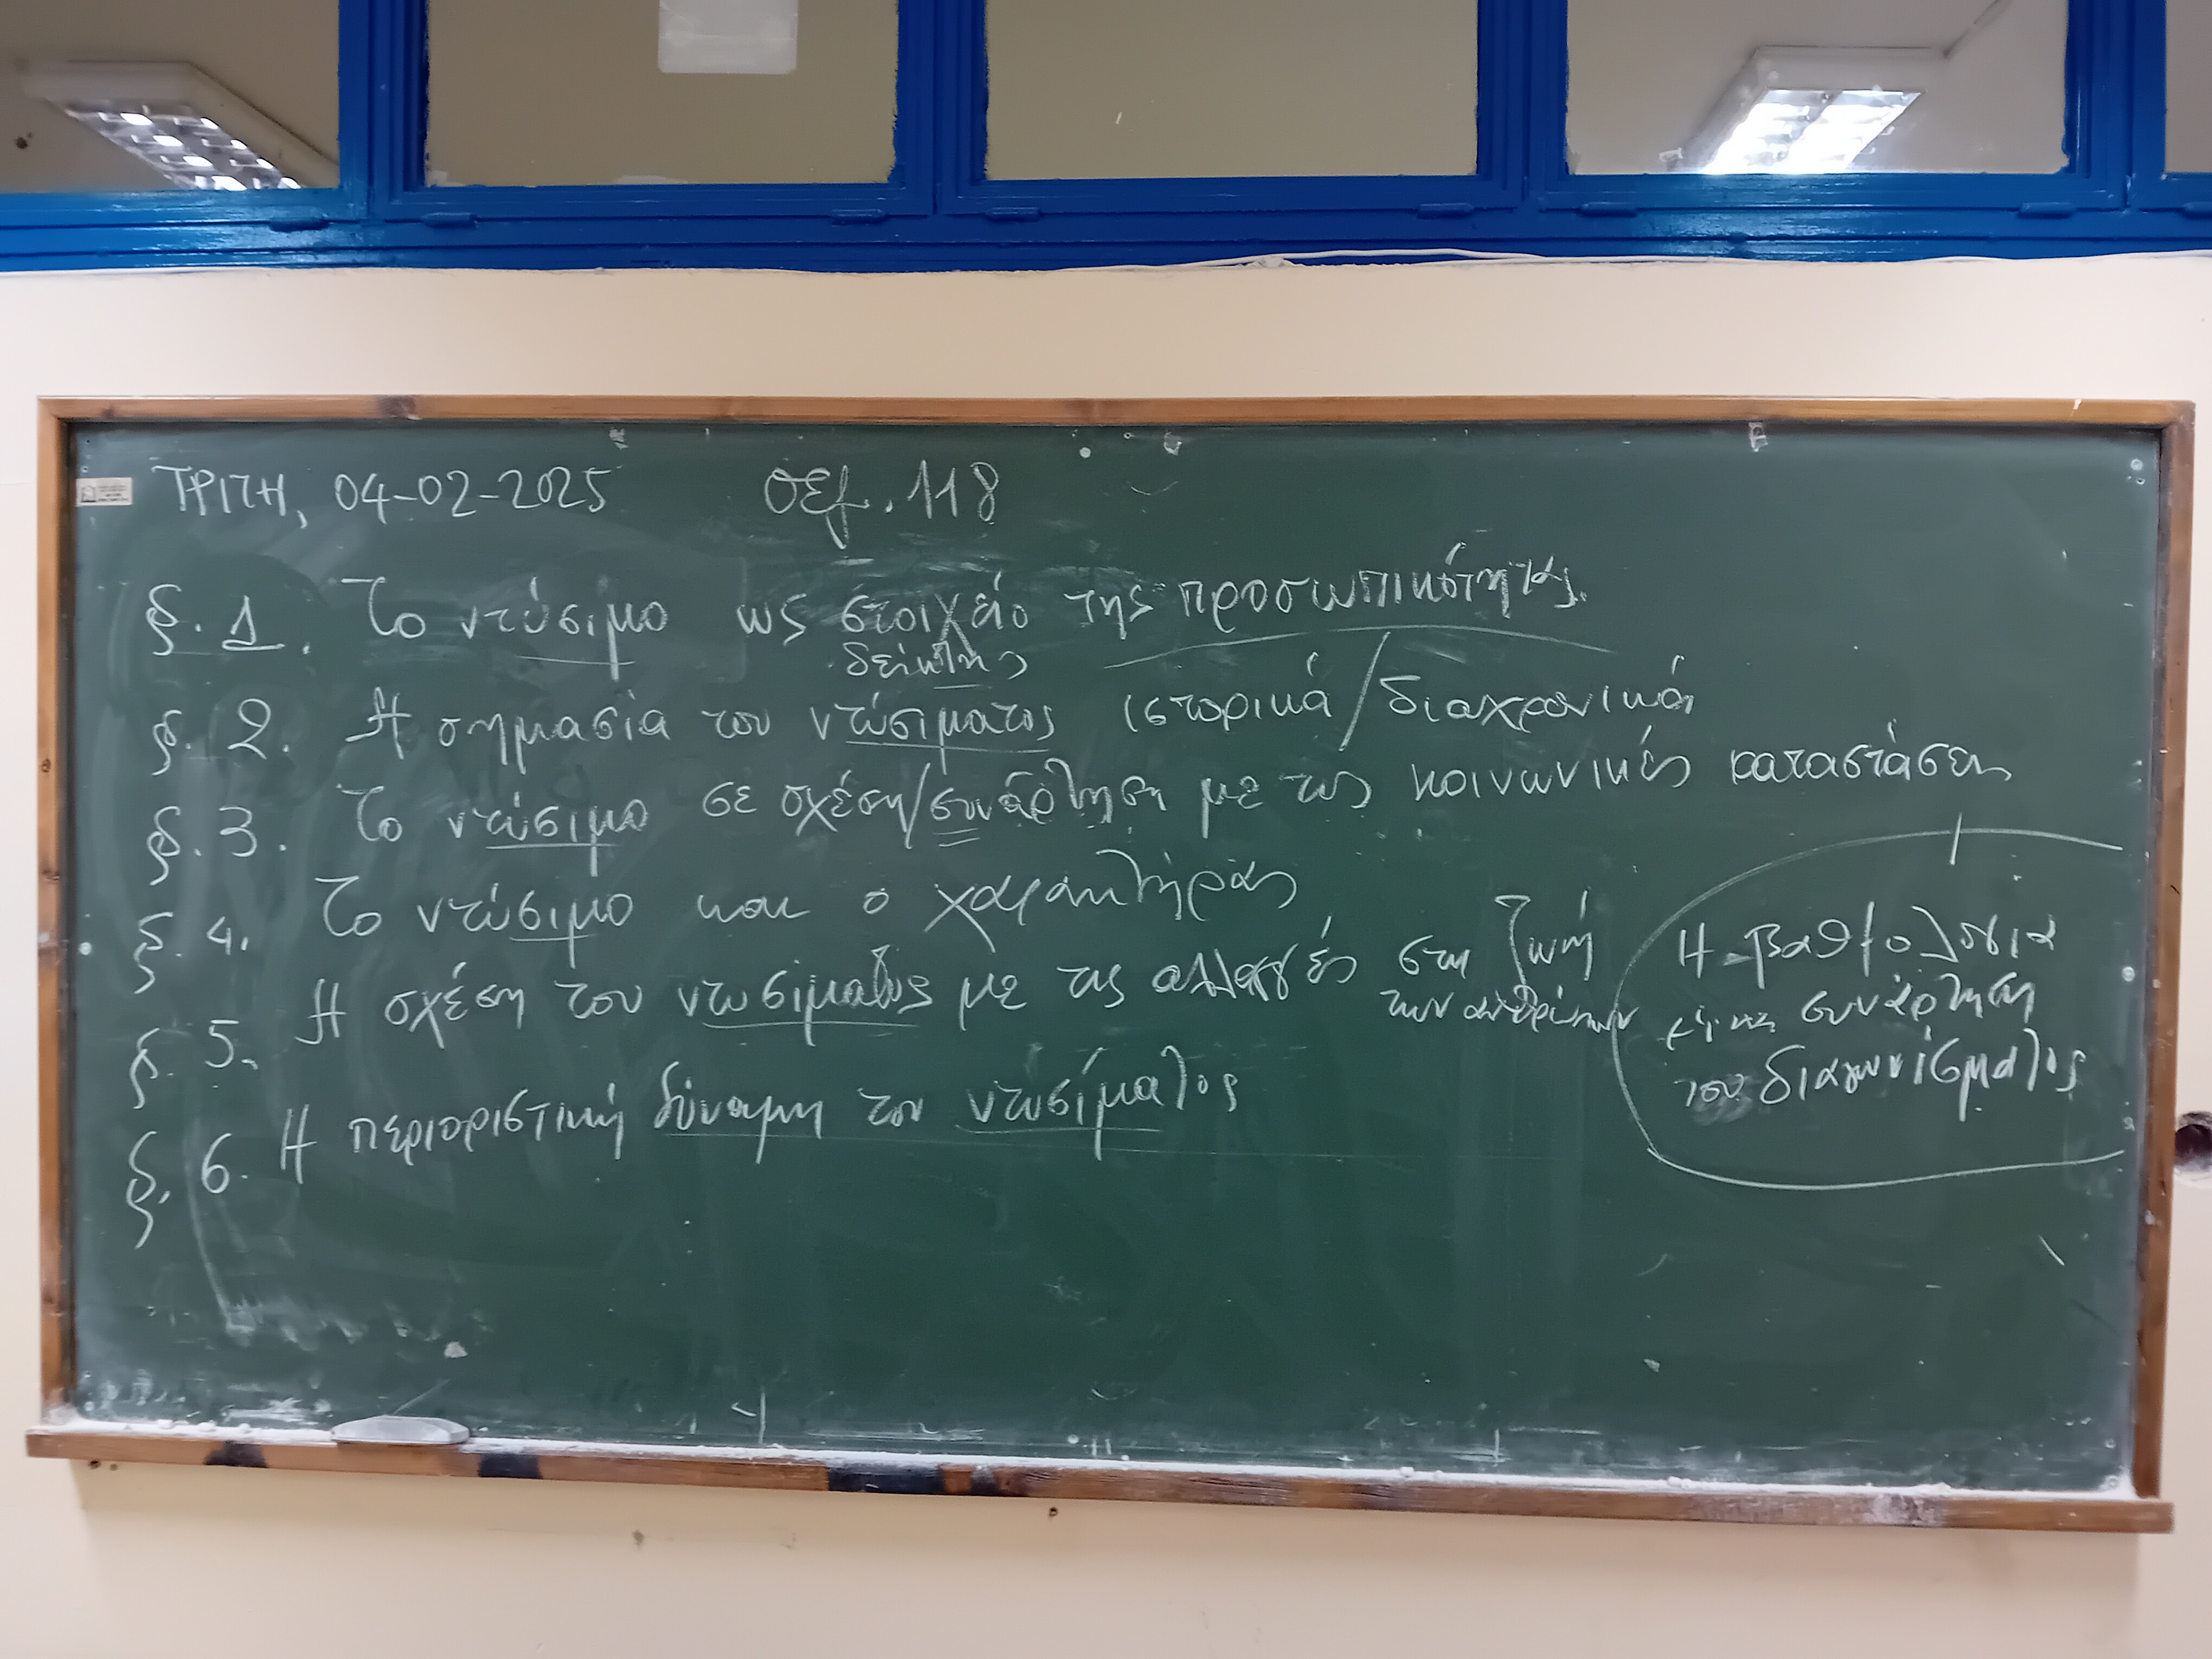 ΤΡΙΤΗ, 04-02-2025 σελ. 118
§. 1. Το ντύσιμο ως στοιχείο της προσωπικότητας.
δείκτης
§. 2. Η σημασία του ντύσιματος ιστορικά/διαχρονικά
§. 3. Το ντύσιμο σε σχέση/συνάρτηση με τις κοινωνικές καταστάσεις
§. 4. Το ντύσιμο και ο χαρακτήρας
§. 5. Η σχέση του ντυσίματος με τις αλλαγές στη ζωή
των ανθρώπων
§. 6. Η περιοριστική δύναμη του ντυσίματος
Η βαθμολογία
είναι συνάρτηση
του διαγωνίσματος